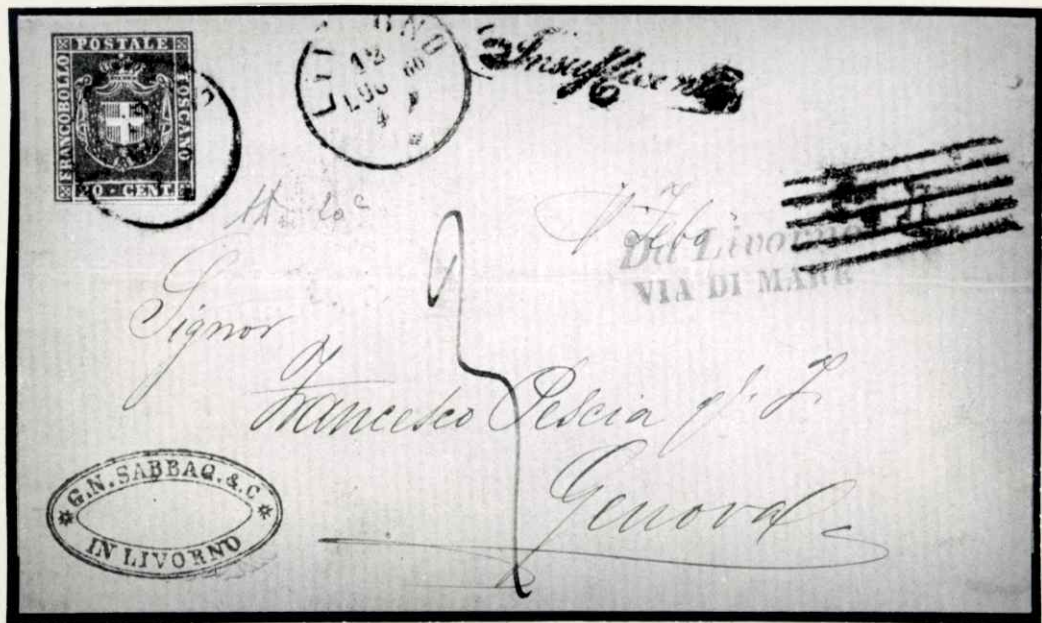 FRANCOBOLLO POSTALE TOSCANO
20 CENT
LIVORNO
12
LUG 60
Insufficiente
Da Livorno
VIA DI MARE
Signor
Francesco Pescia
Genova
G.N. SABBAG. & C
IN LIVORNO